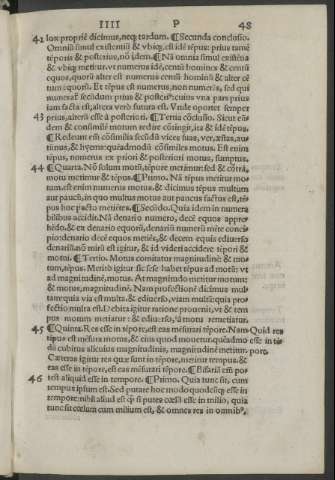 IIII P 48
41 lox propriè dicimus, neq; tardum. ¶ Secunda conclusio.
Omniū simul existentiū & vbiq; est idē tēpus: prius tamē
tēporis & posterius, nō idem. ¶ Nā omnia simul existētia
& vbiq; metitur. vt numerus idē, centū homines & centū
equos, quorū alter est numerus centū hominū & alter cē
tum equorū. Et tēpus est numerus, non numerās, sed qui
numeraī secūdum prius & posteri⁹: cuius vna pars prius
iam facta est, altera verò futura est. Vnde oportet semper
43 prius, alterū esse à posteriori. ¶ Tertia cōclusio. Sicut eun
dem & consimilē motum redire cōtingit, ita & idē tēpus.
¶ Redeunt est cōsimilia secūdū vices suas, ver, æstas, au
tūnus, & hyems: quēadmodū cōsimiles motus. Est enim
tēpus, numerus ex priori & posteriori motus, sumptus.
44 ¶ Quarta. Nō solum motū, tēpore metimur: sed & cōtrà,
motu metimur & tēpus. ¶ Primo. Nā tēpus metitur mo-
tum. est enim numerus motus. & dicimus tēpus multum
aut paucū, in quo multus motus aut paucus factus est, tē-
pus hoc pacto metiētes. ¶ Secūdo. Quia idem in numera
bilibus accidit. Nā denario numero, decē equos appre-
hēdo. & ex denario equorū, denariū numerū mēte conci-
pio: denario decē equos metiēs, & decem equis ediuerso
denariū. nō mirū est igitur, & id videri accidere tēpori &
motui. ¶ Tertio. Motus comitatur magnitudinē & mo-
tum, tēpus. Meritò igitur sic sese habet tēpus ad motū: vt
ad magnitudinē, motus. At magnitudo metitur motum:
& motus, magnitudinē. Nam profectionē dicimus mul-
tam quia via est multa. & ediuerso, viam multā: quia pro-
fectio multa est. Debita igitur ratione prouenit, vt & tem
pus motum metiatur: & ediuerso, à motu remetiatur.
45 ¶ Quinta. Res esse in tēpore, est eas mēsurari tēpore. Nam Quid res
tēpus est mēsura motus, & eius quod mouetur. quēadmo esse in tē-
dū cubitus alicuius magnitudinis, magnitudinē metitur. pore.
Cæteras igitur res quæ sunt in tēpore, metitur tempus. &
eas esse in tēpore, est eas mēsurari tēpore. ¶ Bifariā em po
46 test aliquid esse in tempore. ¶ Primo. Quia tunc sit, cum
tempus ipsum est. Sed putare hoc modo quodcūq; esse in
tempore: nihil aliud est q̃ si putes cœlū esse in milio, quia
tunc sit cœlum cum milium est, & omnes res in omnib⁹,